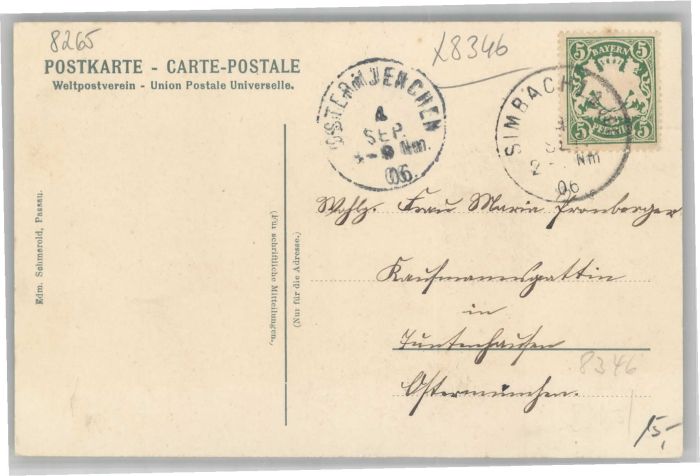 8265
x8346
POSTKARTE - CARTE-POSTALE
Weltpostverein - Union Postale Universelle.
OSTERMUENCHEN
4
SEP.
Nm.
06.
SIMBACH
2
Nm
06
5 BAYERN 5
5 PFENNIG 5
Edm. Sehmerold, Passau.
(Für schriftliche Mitteilungen.)
(Nur für die Adresse.)
Wohlg. Frau Maria Pronberger
Kaufmannsgattin
in
Tuntenhausen
8346
Ostermünchen.
15,-